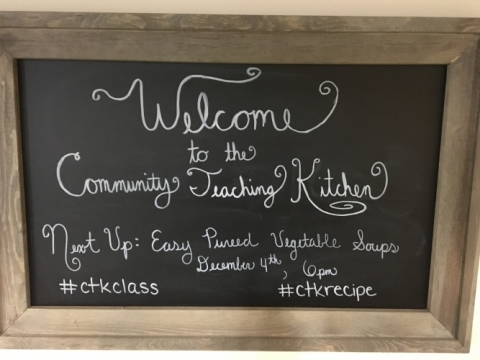 Welcome
to the
Community Teaching Kitchen
Next Up: Easy Pureed Vegetable Soups
December 4th, 6pm
#ctkclass #ctkrecipe